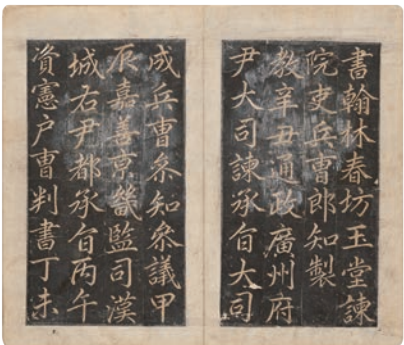 書翰林春坊玉堂諫
院吏兵曹郎知製
教辛丑通政廣州府
尹大司諫承旨大司
成兵曹叅知叅議甲
辰嘉善京畿監司漢
城右尹都承旨丙午
資憲户曹判書丁未